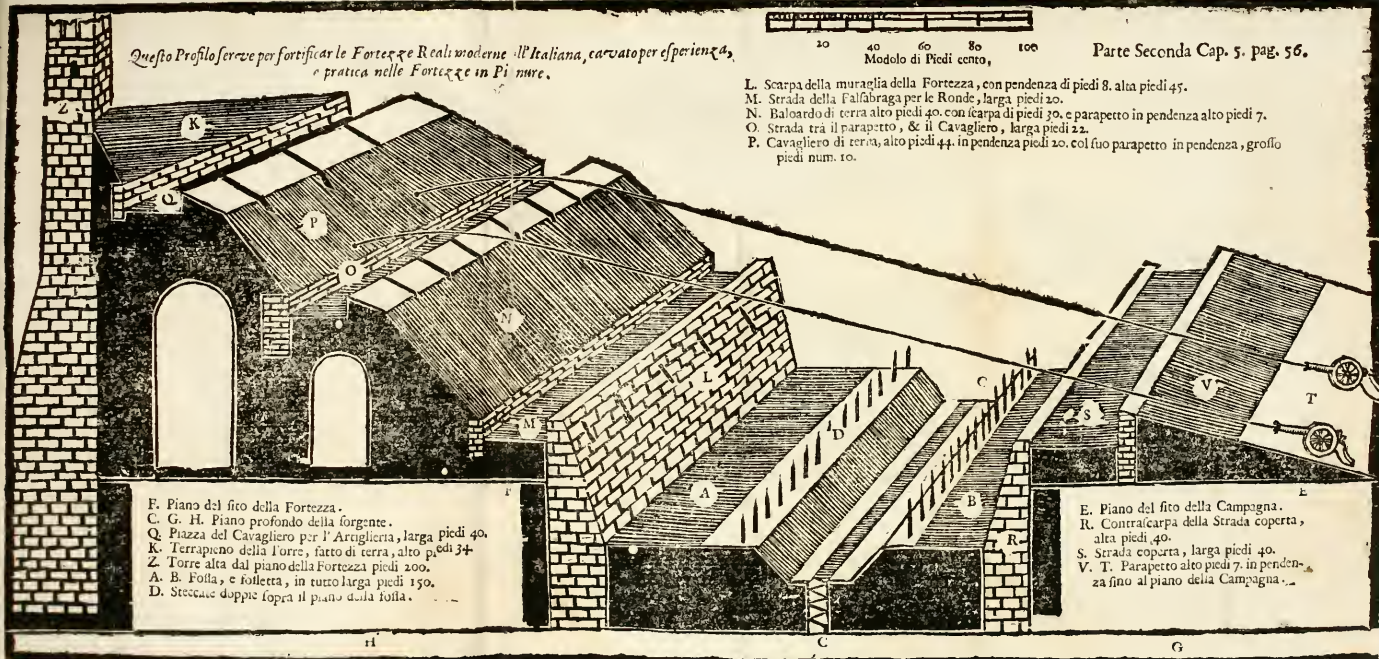 Questo Profilo serve per fortificar le Fortezze Reali moderne all'Italiana, cavato per esperienza,
e pratica nelle Fortezze in Pi nure.
20 40 60 80 100
Modolo di Piedi cento,
Parte Seconda Cap. 5. pag. 56.
L. Scarpa della muraglia della Fortezza, con pendenza di piedi 8. alta piedi 45.
M. Strada della Falsabraga per le Ronde, larga piedi 20.
N. Baloardo di terra alto piedi 40. con scarpa di piedi 30. e parapetto in pendenza alto piedi 7.
O. Strada trà il parapetto, & il Cavagliero, larga piedi 22.
P. Cavagliero di terra, alto piedi 44. in pendenza piedi 20. col suo parapetto in pendenza, grosso
piedi num. 10.
Z
K
Q
P
O
N
M
L
A
D
C
B
R
S
V
T
F
E
F. Piano del sito della Fortezza.
C. G. H. Piano profondo della sorgente.
Q. Piazza del Cavagliero per l'Artiglieria, larga piedi 40.
K. Terrapieno della Torre, fatto di terra, alto piedi 34
Z. Torre alta dal piano della Fortezza piedi 200.
A. B. Fossa, e fossetta, in tutto larga piedi 150.
D. Steccate doppie sopra il piano della fossa.
E. Piano del sito della Campagna.
R. Contrascarpa della Strada coperta,
alta piedi 40.
S. Strada coperta, larga piedi 40.
V. T. Parapetto alto piedi 7. in penden-
za fino al piano della Campagna.
H
C
G